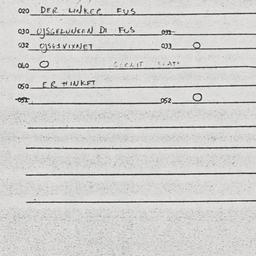 020 DER LINKER FUS
030 OJSGELUNKEN DI FUS 031
032 OJSGIVIXNET 033 O
040 O
050 ER HINKET
051 052 O